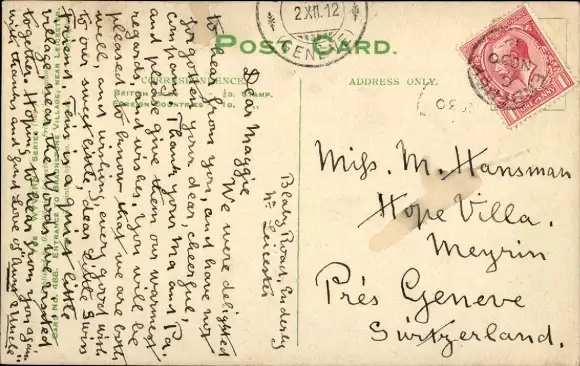 2 XII. 12
(GENÈVE)
POST CARD.
CORRESPONDENCE
BRITISH ISLES ½D. STAMP.
FOREIGN COUNTRIES 1D. "
ADDRESS ONLY.
Beatty Road, Enderby
Nr. Leicester
Dear Maggie
We were delighted
to hear from you, and have not
forgotten your dear, cheerful,
company. Thank your Ma and Pa
and please give them our warmest
regards, and wishes. You will be
pleased to know that we are both
well, and wishing every good wish
to our sweet little, dear Little Swiss
Friend. This is a quiet little
village near the Woods we visited
together. Hoping to hear from you again
with thanks and good Love of "Aunt & Uncle"
Miss. M. Hansman
Hope Villa.
Meyrin
Prés Geneve
Switzerland.
NO 30